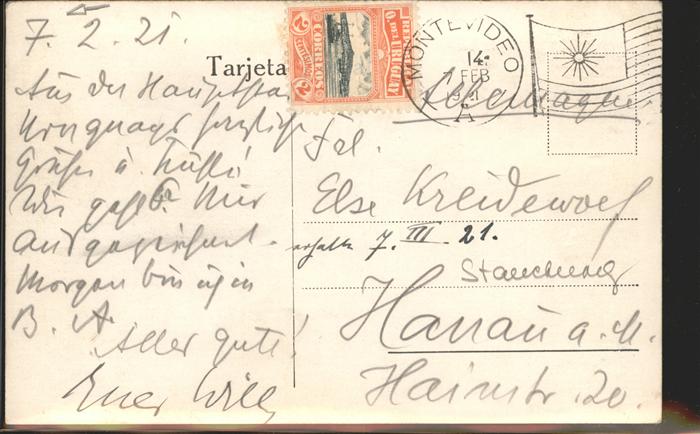 7. 2. 21.
Tarjeta
Aus der Hauptstadt
Uruguays herzliche
Grüße u. Küsse!
Wie geht's? Mir
ausgezeichnet.
Morgen bin ich in
B. A.
Alles gute!
Euer Willy
REP. O. DEL URUGUAY
CORREOS
2 CENTESIMOS 2
MONTEVIDEO
14
FEB
A
Allemagne
Frl.
Else Kreidewolf
erhalten 7. III 21.
Hanau a. M.
Hainstr. 20.